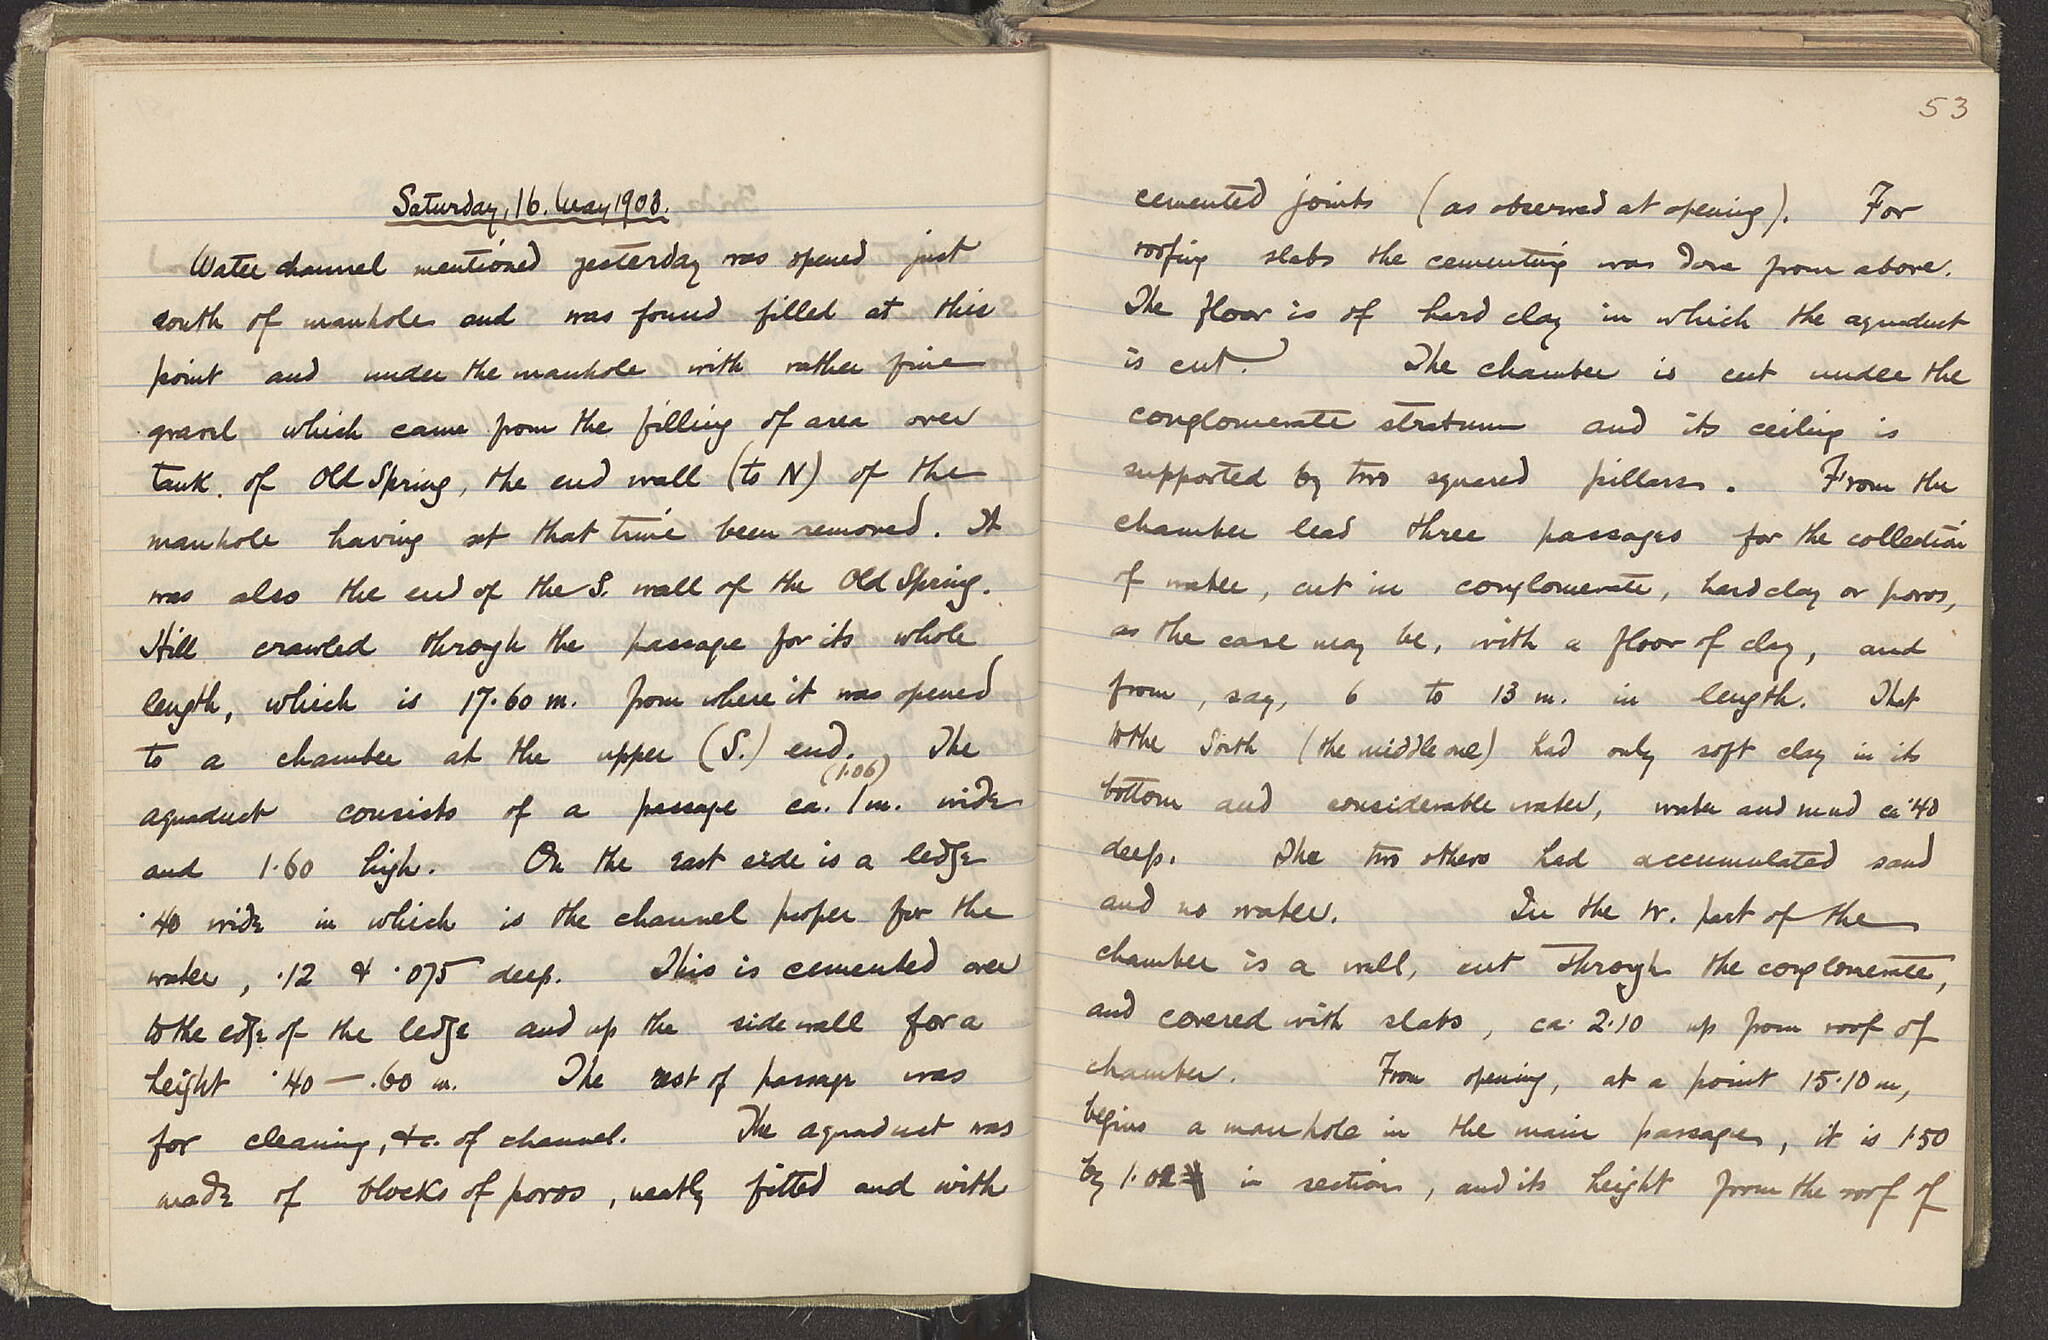 Saturday, 16. May 1903.
Water channel mentioned yesterday was opened just
south of manhole and was found filled at this
point and under the manhole with rather fine
gravel which came from the filling of area over
tank of Old Spring, the end wall (to N) of the
manhole having at that time been removed. It
was also the end of the S. wall of the Old Spring.
Hill crawled through the passage for its whole
length, which is 17.60 m. from where it was opened
to a chamber at the upper (S.) end. The
(1.06)
aquaduct consists of a passage ca. 1 m. wide
and 1.60 high. On the east side is a ledge
.40 wide in which is the channel proper for the
water, .12 & .075 deep. This is cemented over
to the edge of the ledge and up the side wall for a
height .40 — .60 m. The rest of passage was
for cleaning, &c. of channel. The aquaduct was
made of blocks of poros, neatly fitted and with
53
cemented joints (as observed at opening). For
roofing slabs the cementing was done from above.
The floor is of hard clay in which the aquaduct
is cut. The chamber is cut under the
conglomerate stratum and its ceiling is
supported by two squared pillars. From the
chamber lead three passages for the collection
of water, cut in conglomerate, hard clay or poros,
as the case may be, with a floor of clay, and
from, say, 6 to 13 m. in length. That
to the South (the middle one) had only soft clay in its
bottom and considerable water, water and mud ca .40
deep. The two others had accumulated sand
and no water. In the W. part of the
chamber is a well, cut through the conglomerate,
and covered with slabs, ca. 2.10 up from roof of
chamber. From opening, at a point 15.10 m,
begins a manhole in the main passage, it is 1.50
by 1.02 in section, and its height from the roof of